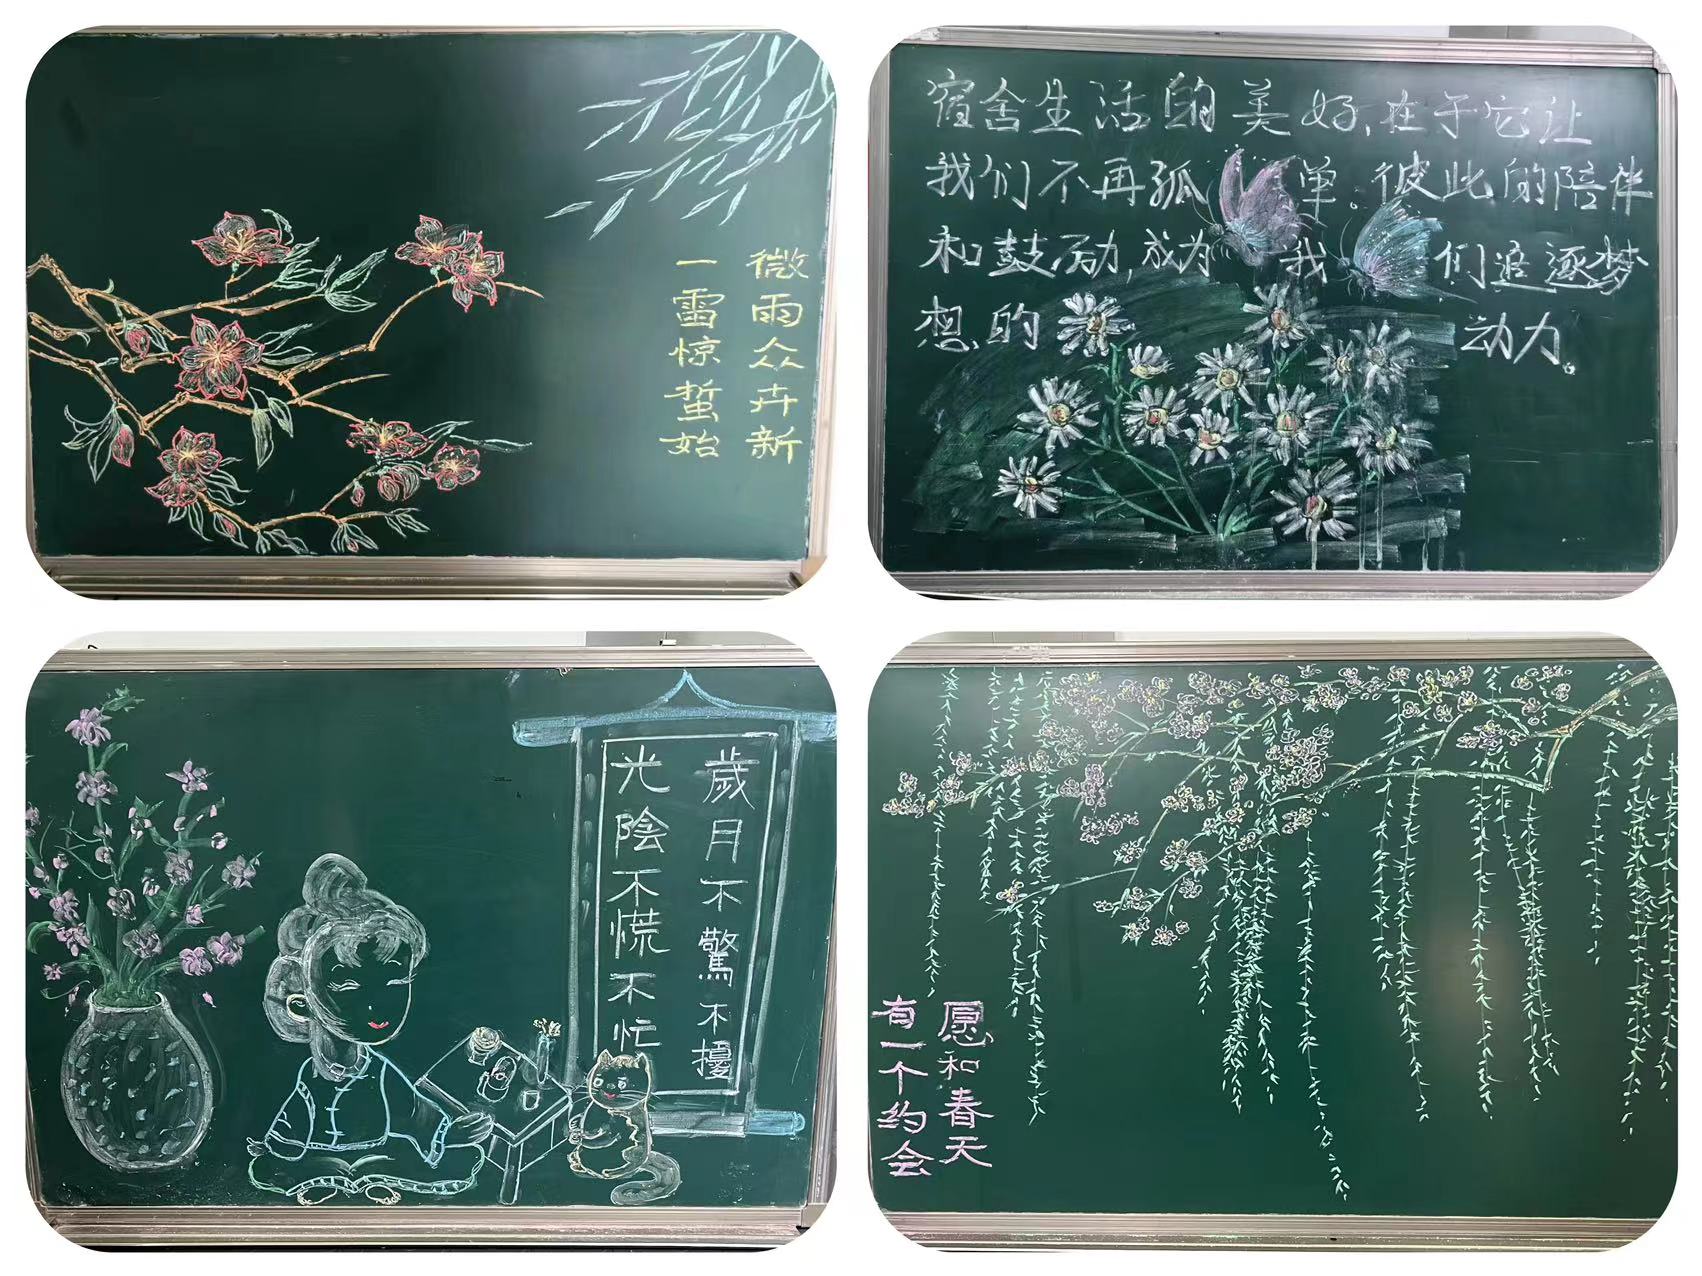 微雨众卉新
一雷惊蛰始
宿舍生活的美好,在于它让
我们不再孤单。彼此的陪伴
和鼓励,成为我们追逐梦
想的动力。
歲月不驚不擾
光陰不慌不忙
愿和春天
有一个约会